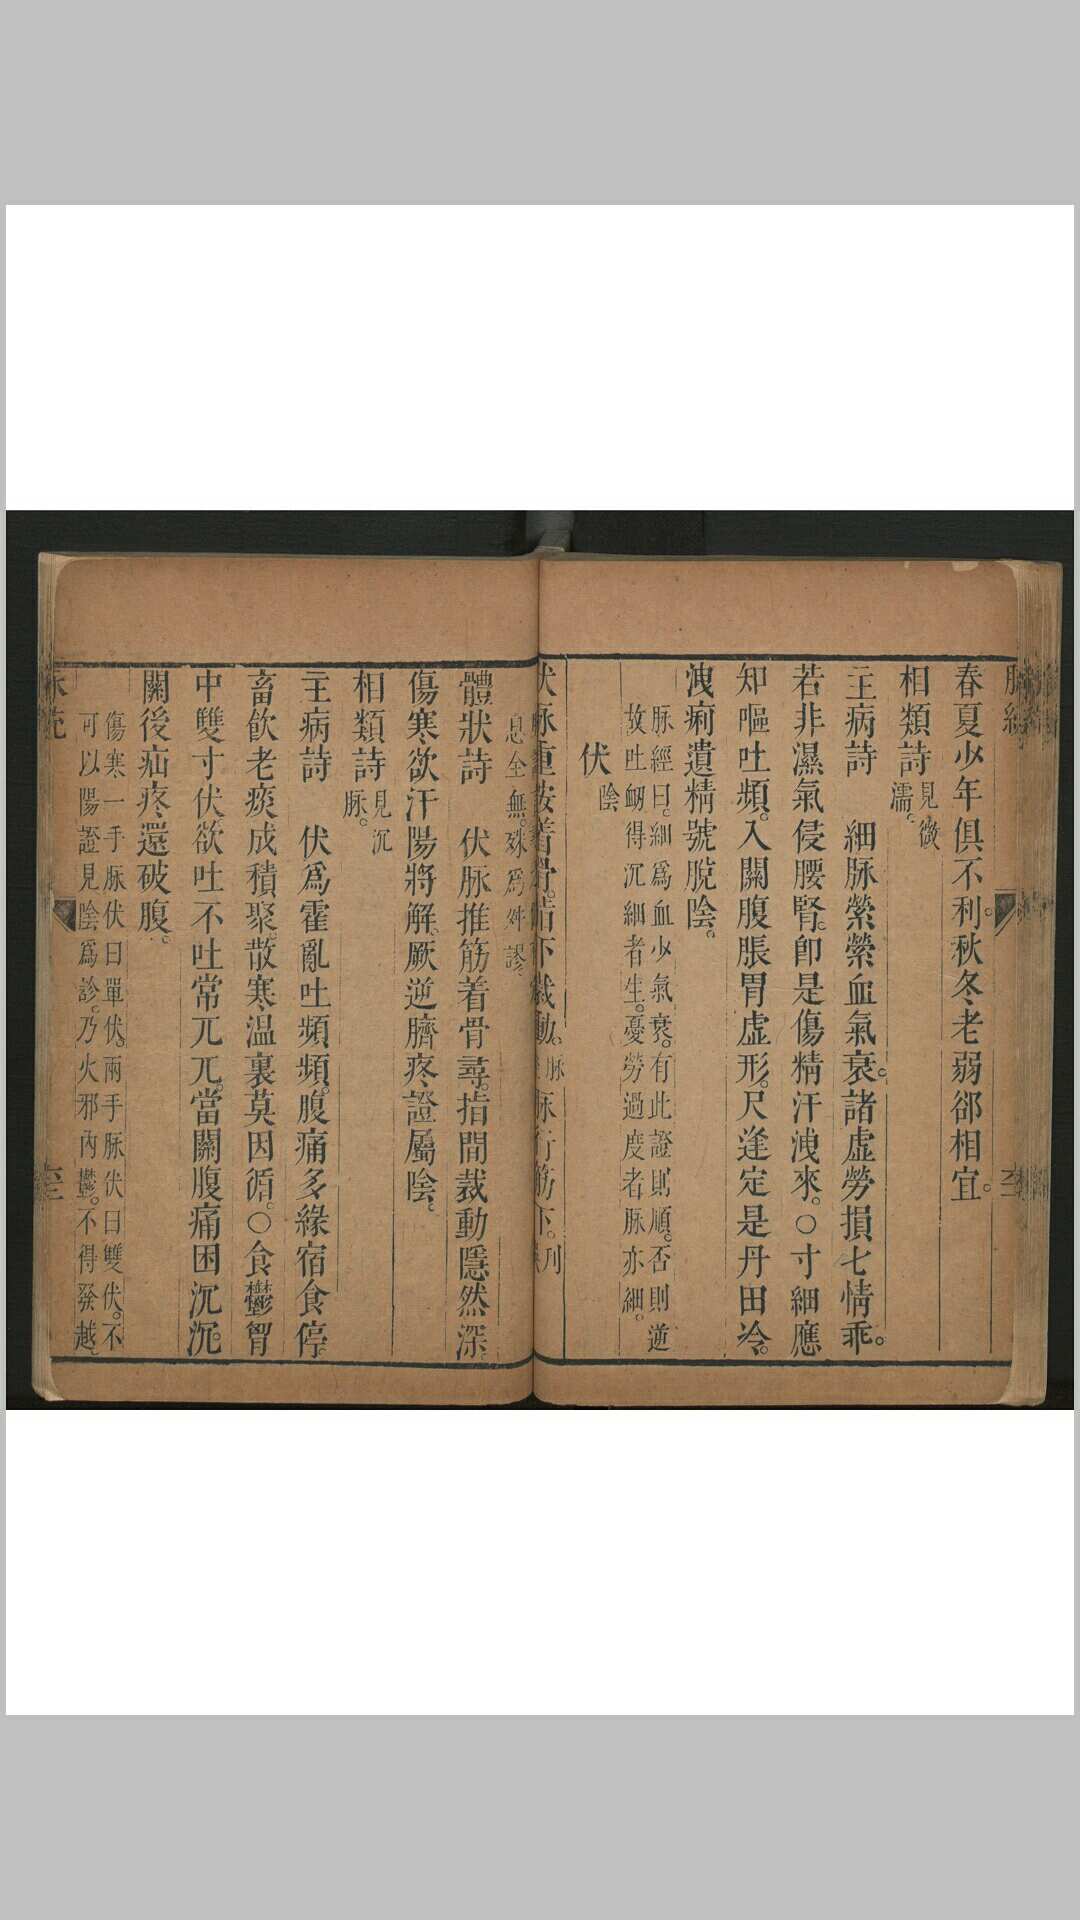 春夏少年俱不利。秋冬老弱郤相宜。
相類詩 見微濡。
主病詩 細脉縈縈血氣衰。諸虛勞損七情乖。
若非濕氣侵腰腎。卽是傷精汗洩來。○寸細應
知嘔吐頻。入關腹脹胃虛形。尺逢定是丹田冷。
洩痢遺精號脫陰。
脉經曰。細爲血少氣衰。有此證則順。否則逆
故吐衂得沉細者生。憂勞過度者脉亦細。
伏 陰
伏脉重按着骨。指下裁動。脉
脉行筋下。
息全無。殊爲舛謬。
體狀詩 伏脉推筋着骨尋。指間裁動隱然深。
傷寒欲汗陽將解。厥逆臍疼證屬陰。
相類詩 見沉脉。
主病詩 伏爲霍亂吐頻頻。腹痛多緣宿食停。
畜飲老痰成積聚。散寒温裏莫因循。○食鬱胷
中雙寸伏。欲吐不吐常兀兀。當關腹痛困沉沉。
關後疝疼還破腹。
傷寒一手脉伏曰單伏。兩手脉伏曰雙伏。不
可以陽證見陰爲診。乃火邪內鬱。不得發越。